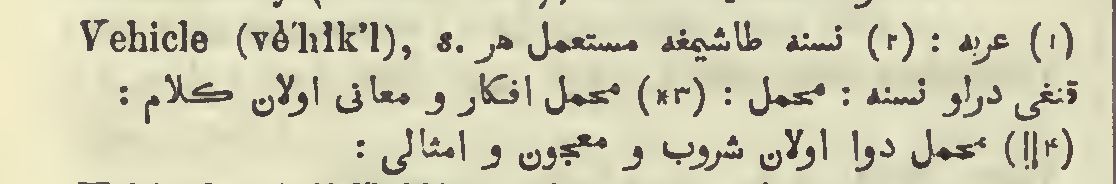 Vehicle (vè´hı̆k’l), s. (١) عربه : (٢) نسنه طاشيمغه مستعمل هر
قنغى درلو نسنه : محمل : (٣*) محمل افكار و معانى اولان كلام :
(٤||) محمل دوا اولان شروب و معجون و امثالى :